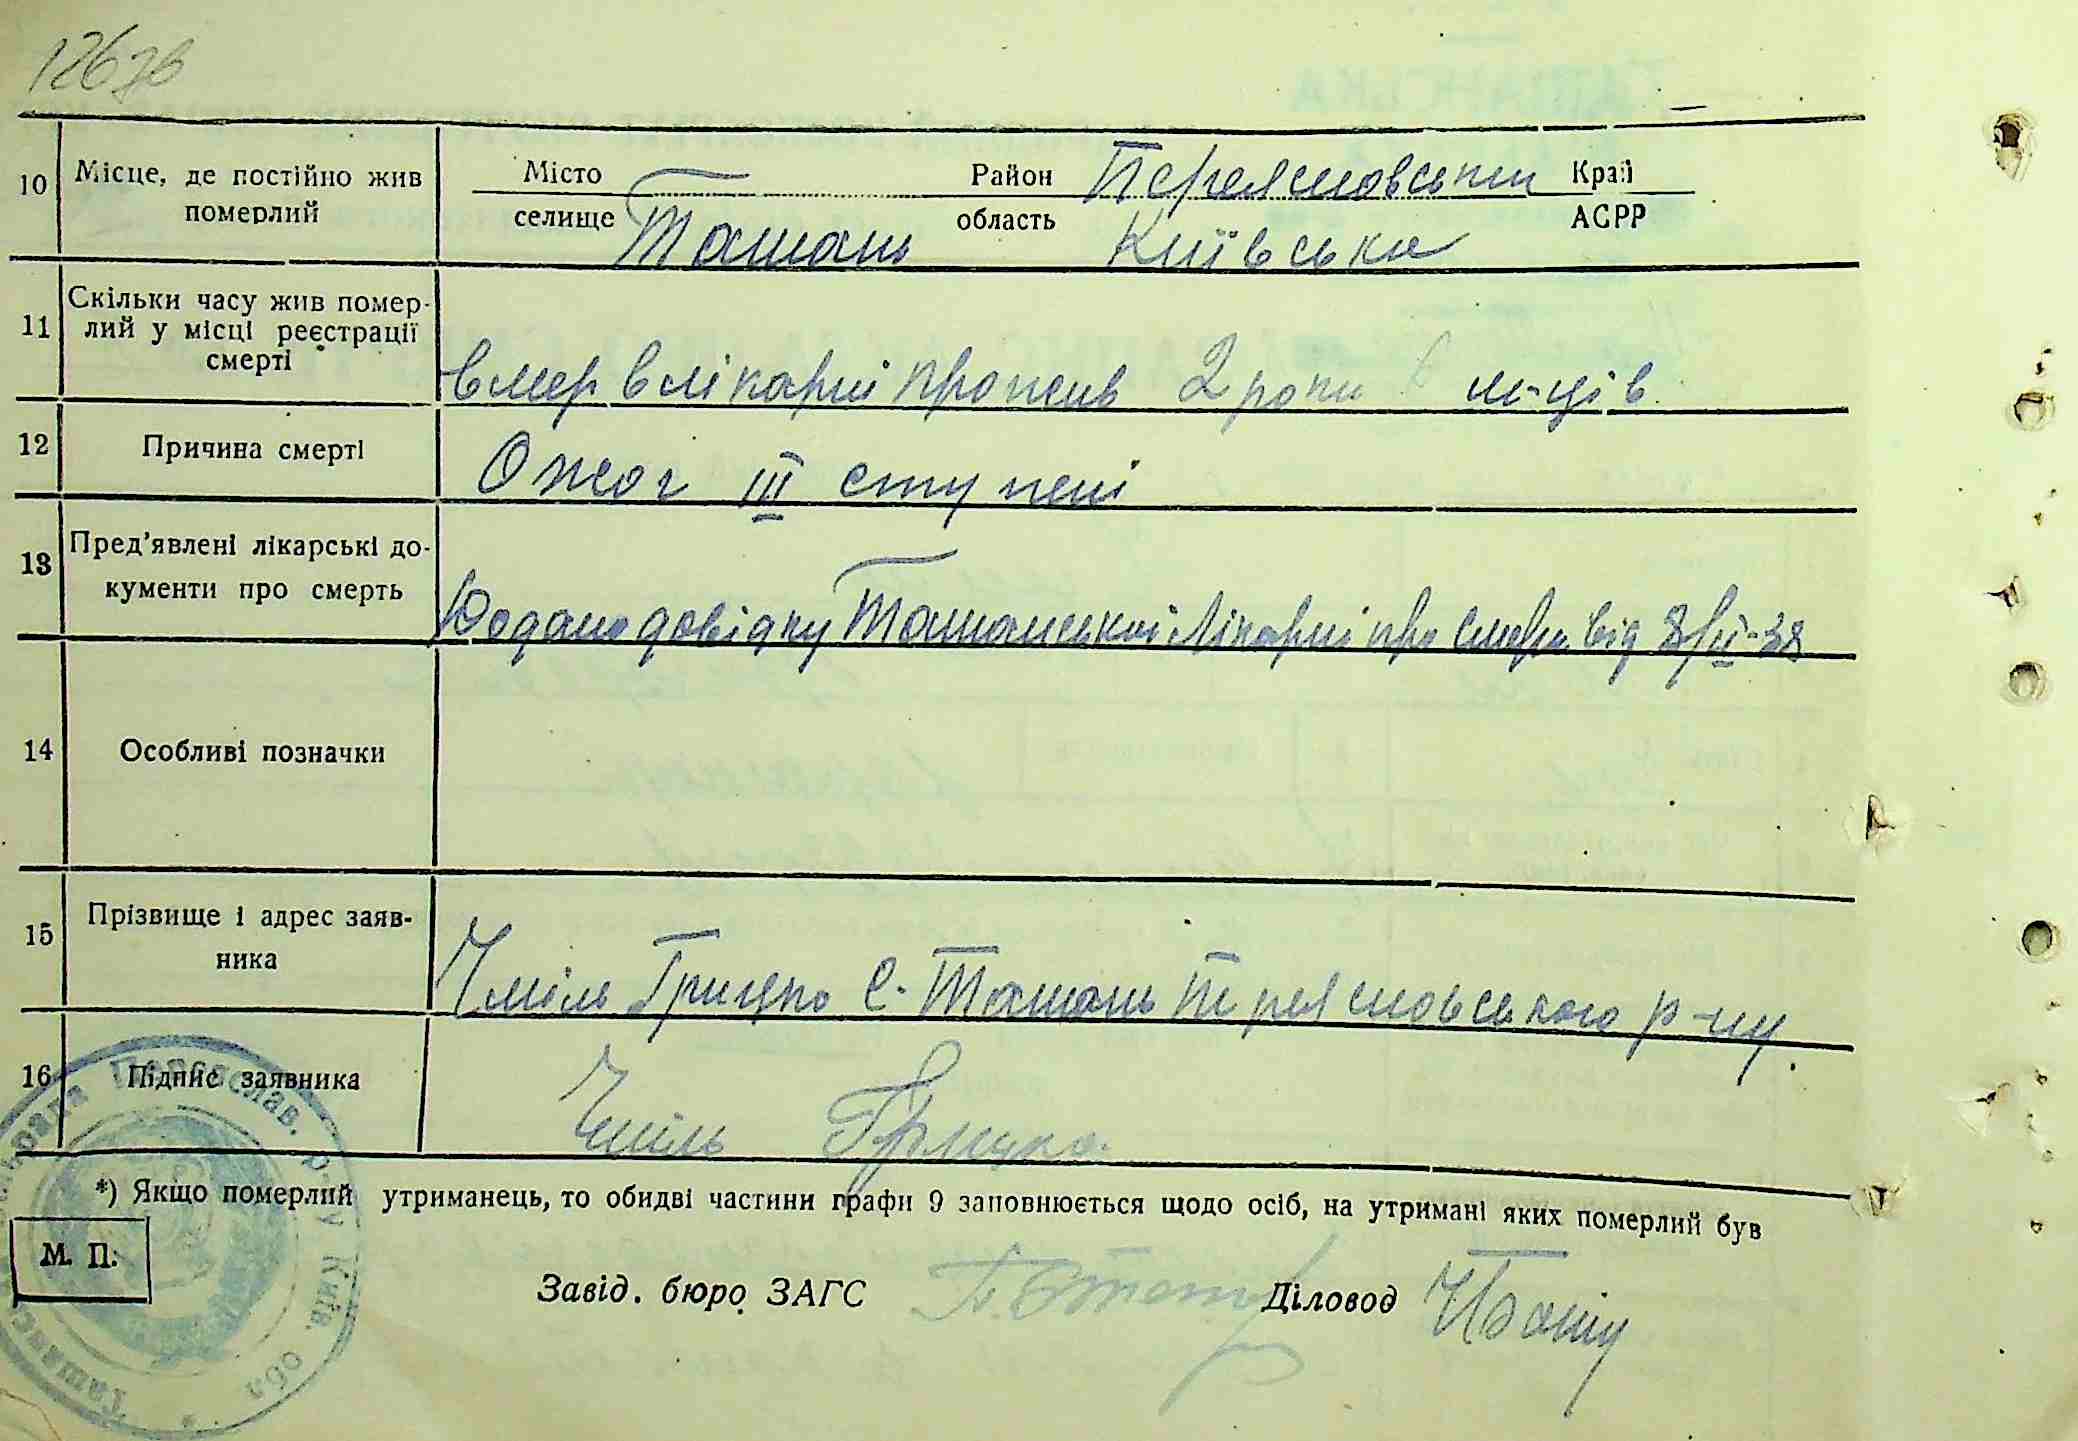 1267в
10 Місце, де постійно жив померлий
Місто Район Переяславський Край
селище Ташань область Київська АСРР
11 Скільки часу жив помер-
лий у місці реєстрації
смерті
вмер в лікарні прожив 2 роки 6 м-ців
12 Причина смерті Ожог III ступені
13 Пред'явлені лікарські до-
кументи про смерть
Додано довідку Ташанської лікарні про смерть від 8/II-38
14 Особливі позначки
15 Прізвище і адрес заяв-
ника
Чміль Грицько с. Ташань Переяславського р-ну.
16 Підпис заявника Чміль Грицько.
*) Якщо померлий утриманець, то обидві частини графи 9 заповнюється щодо осіб, на утримані яких померлий був
М. П.
Завід. бюро ЗАГС Діловод
Ташанс Переяслав. р-ну Київ. обл